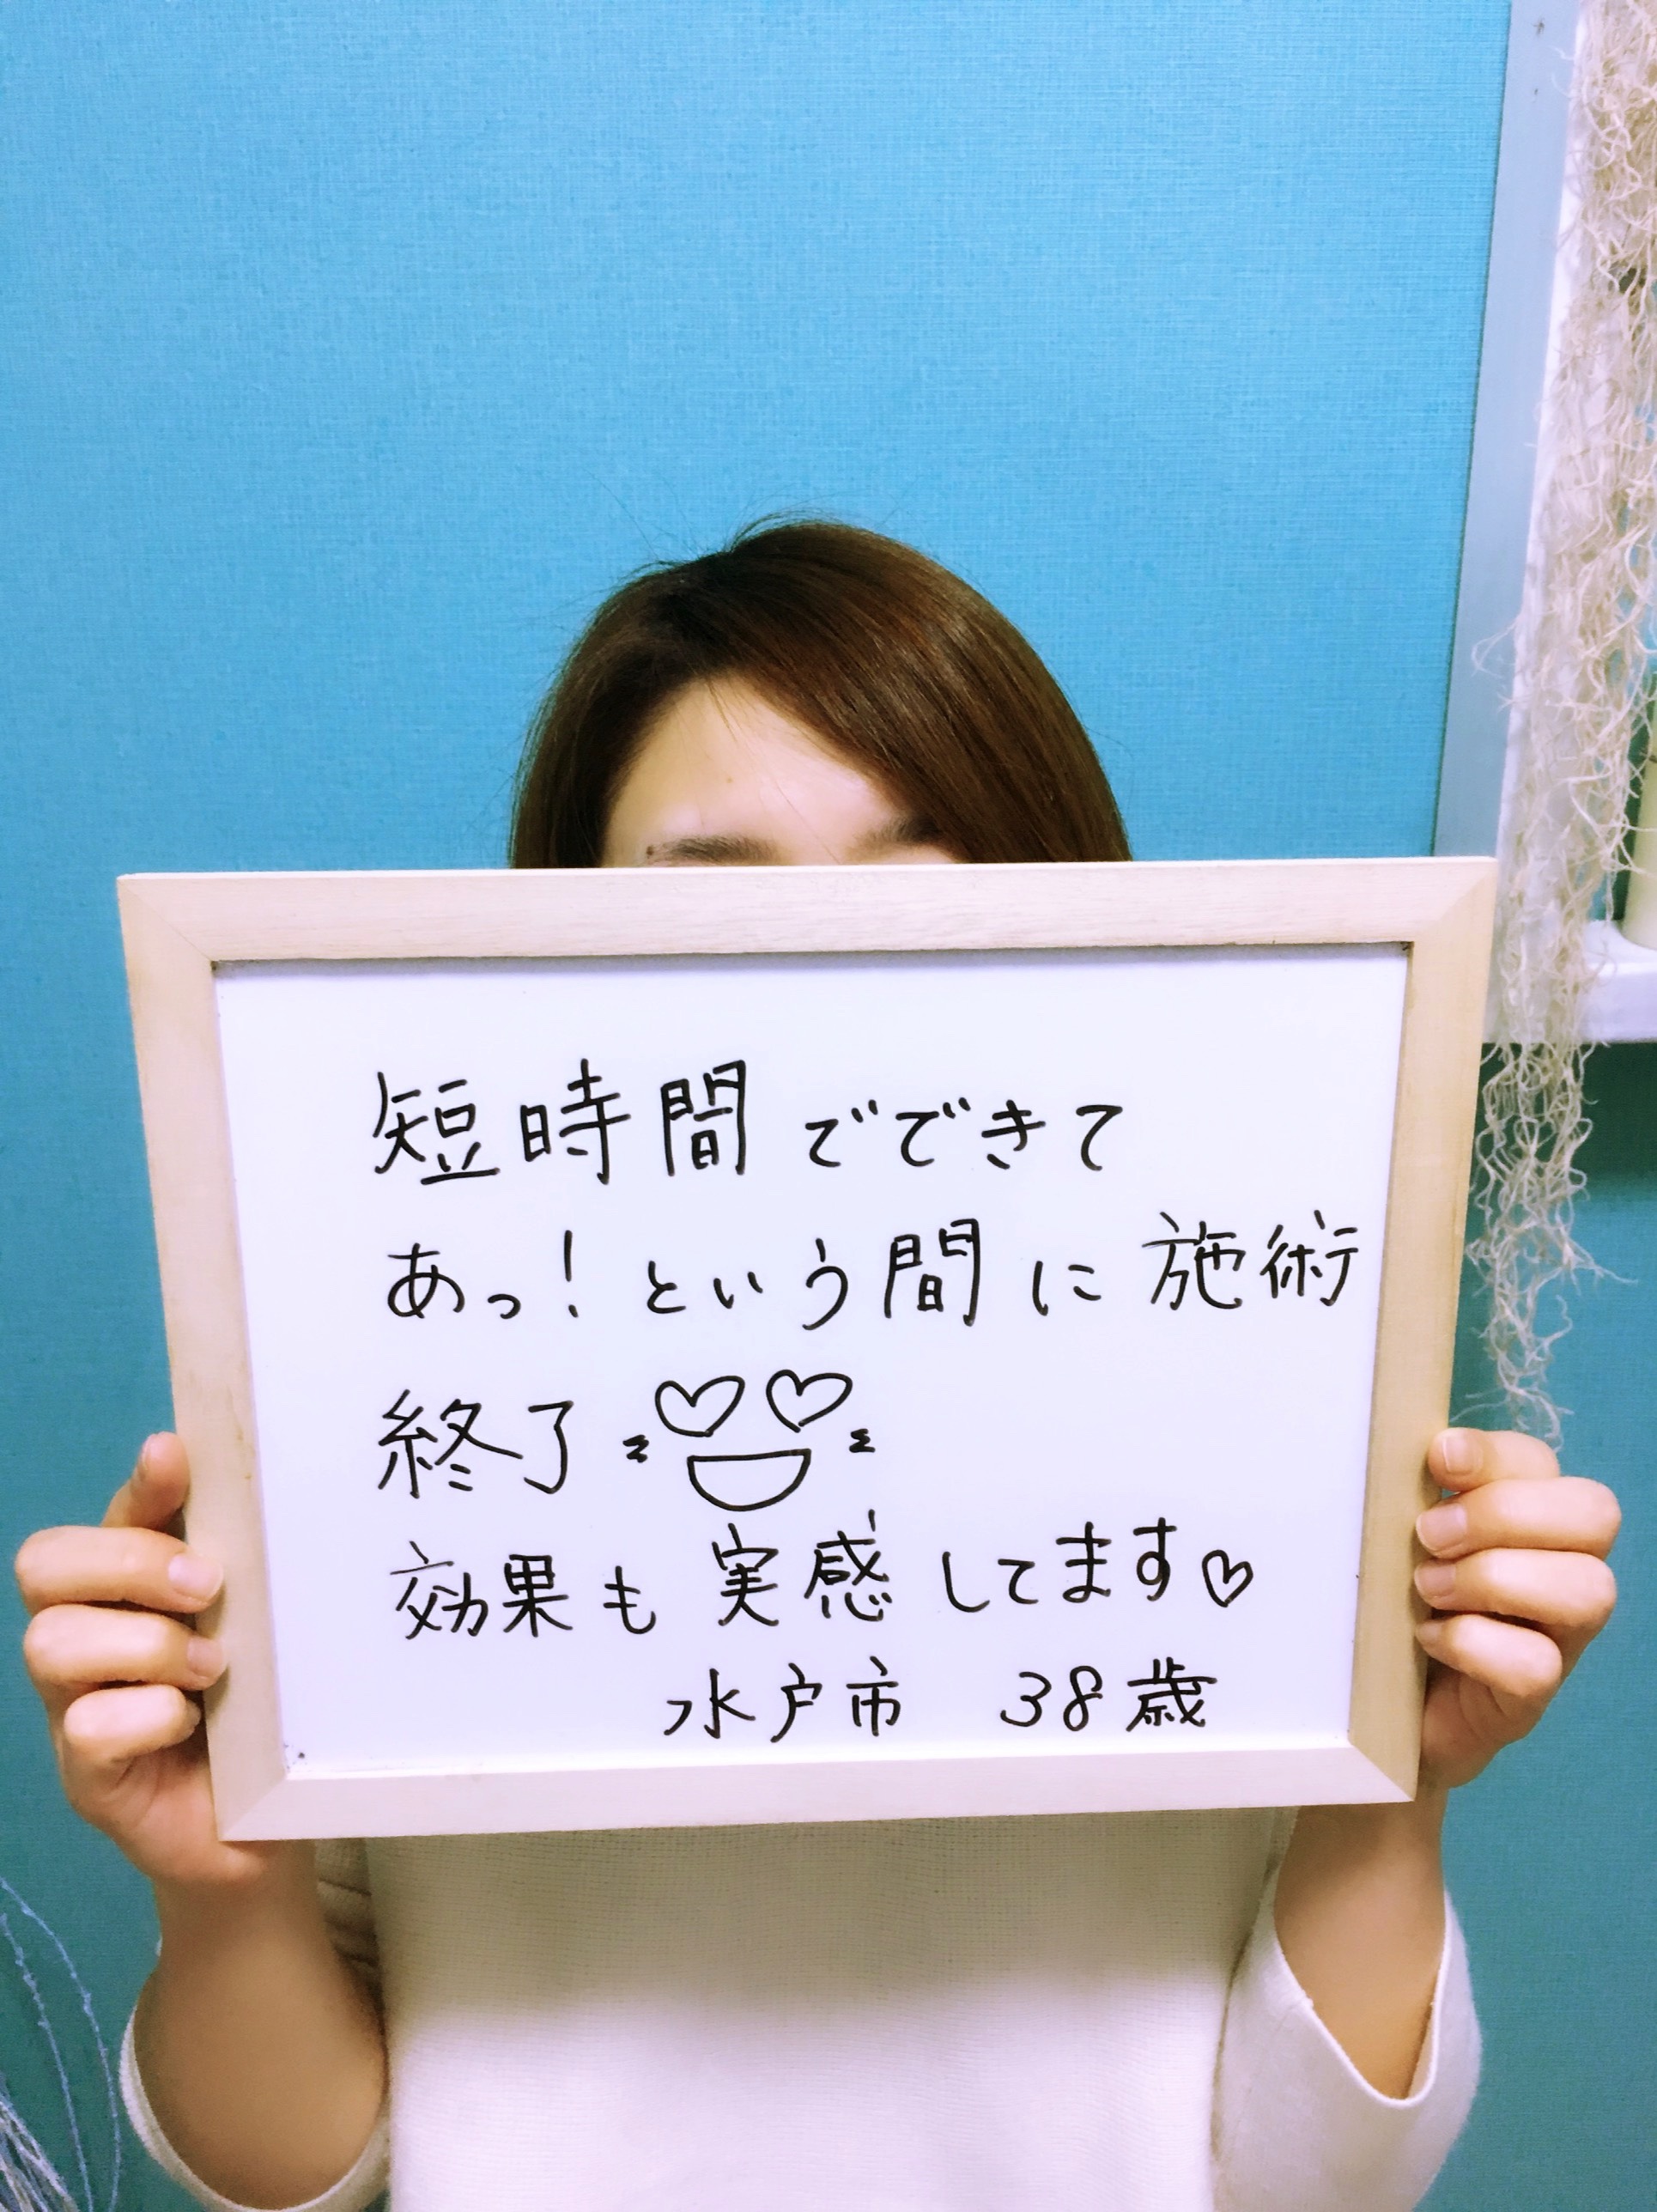 短時間でできて
あっ！という間に施術
終了
効果も実感してます♡
水戸市 38歳